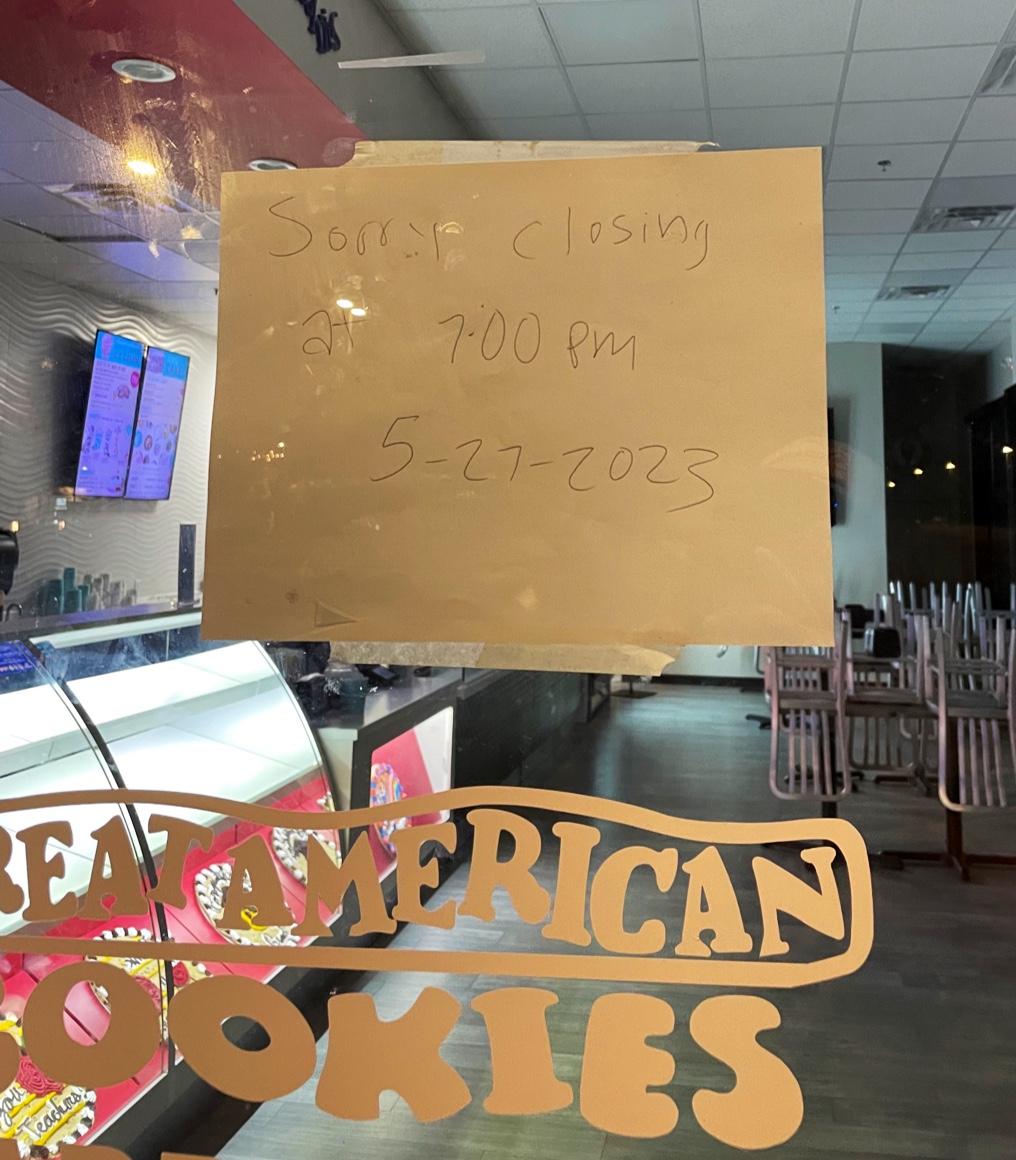 Sorry closing
at 7:00 pm
5-27-2023
GREAT AMERICAN
COOKIES
you
Teachers